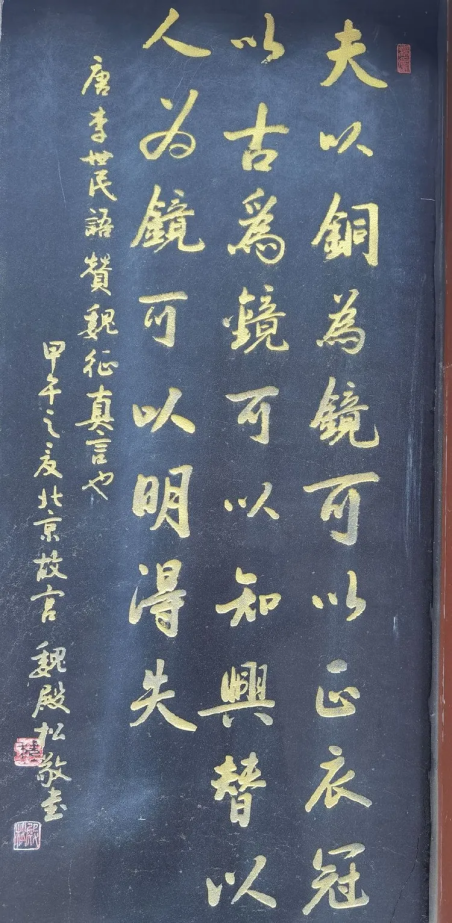 夫以銅為鏡可以正衣冠
以古為鏡可以知興替以
人为鏡可以明得失
唐李世民語贊魏征真言也
甲午之夏北京故宫魏殿松敬书